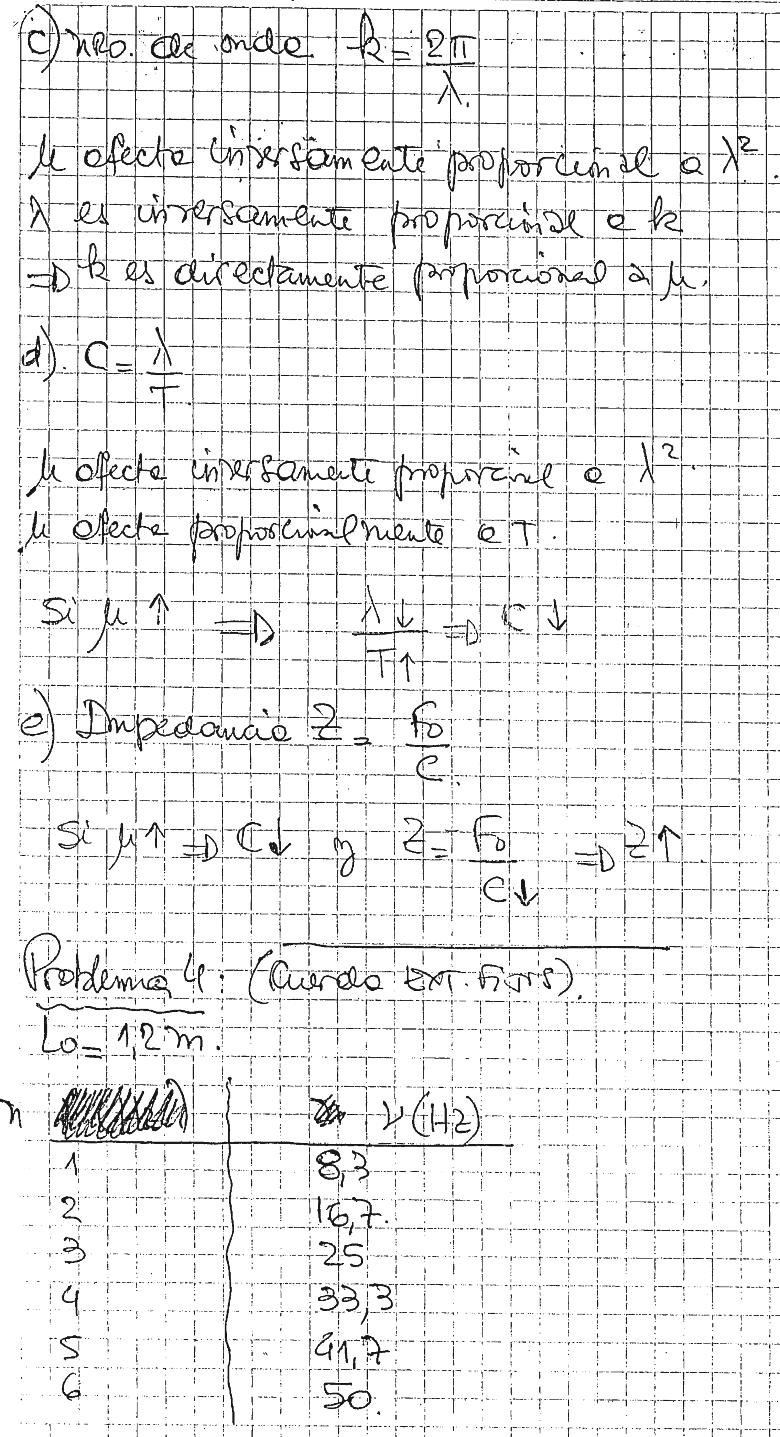 c) nro. de onda k = 2π/λ
μ afecta inversamente proporcional a λ².
λ es inversamente proporcional a k
⇒ k es directamente proporcional a μ.
d). C = λ/T
μ afecta inversamente proporcional a λ².
μ afecta proporcionalmente a T.
Si μ ↑ ⇒ λ↓/T↑ ⇒ C ↓
e) Impedancia Z = F0/C.
Si μ↑ ⇒ C↓ y Z = F0/C↓ ⇒ Z↑.
Problema 4: (Cuerda Ext. Fijos).
L0 = 1,2 m.
n ν (Hz)
1 8,3
2 16,7.
3 25
4 33,3
5 41,7
6 50.